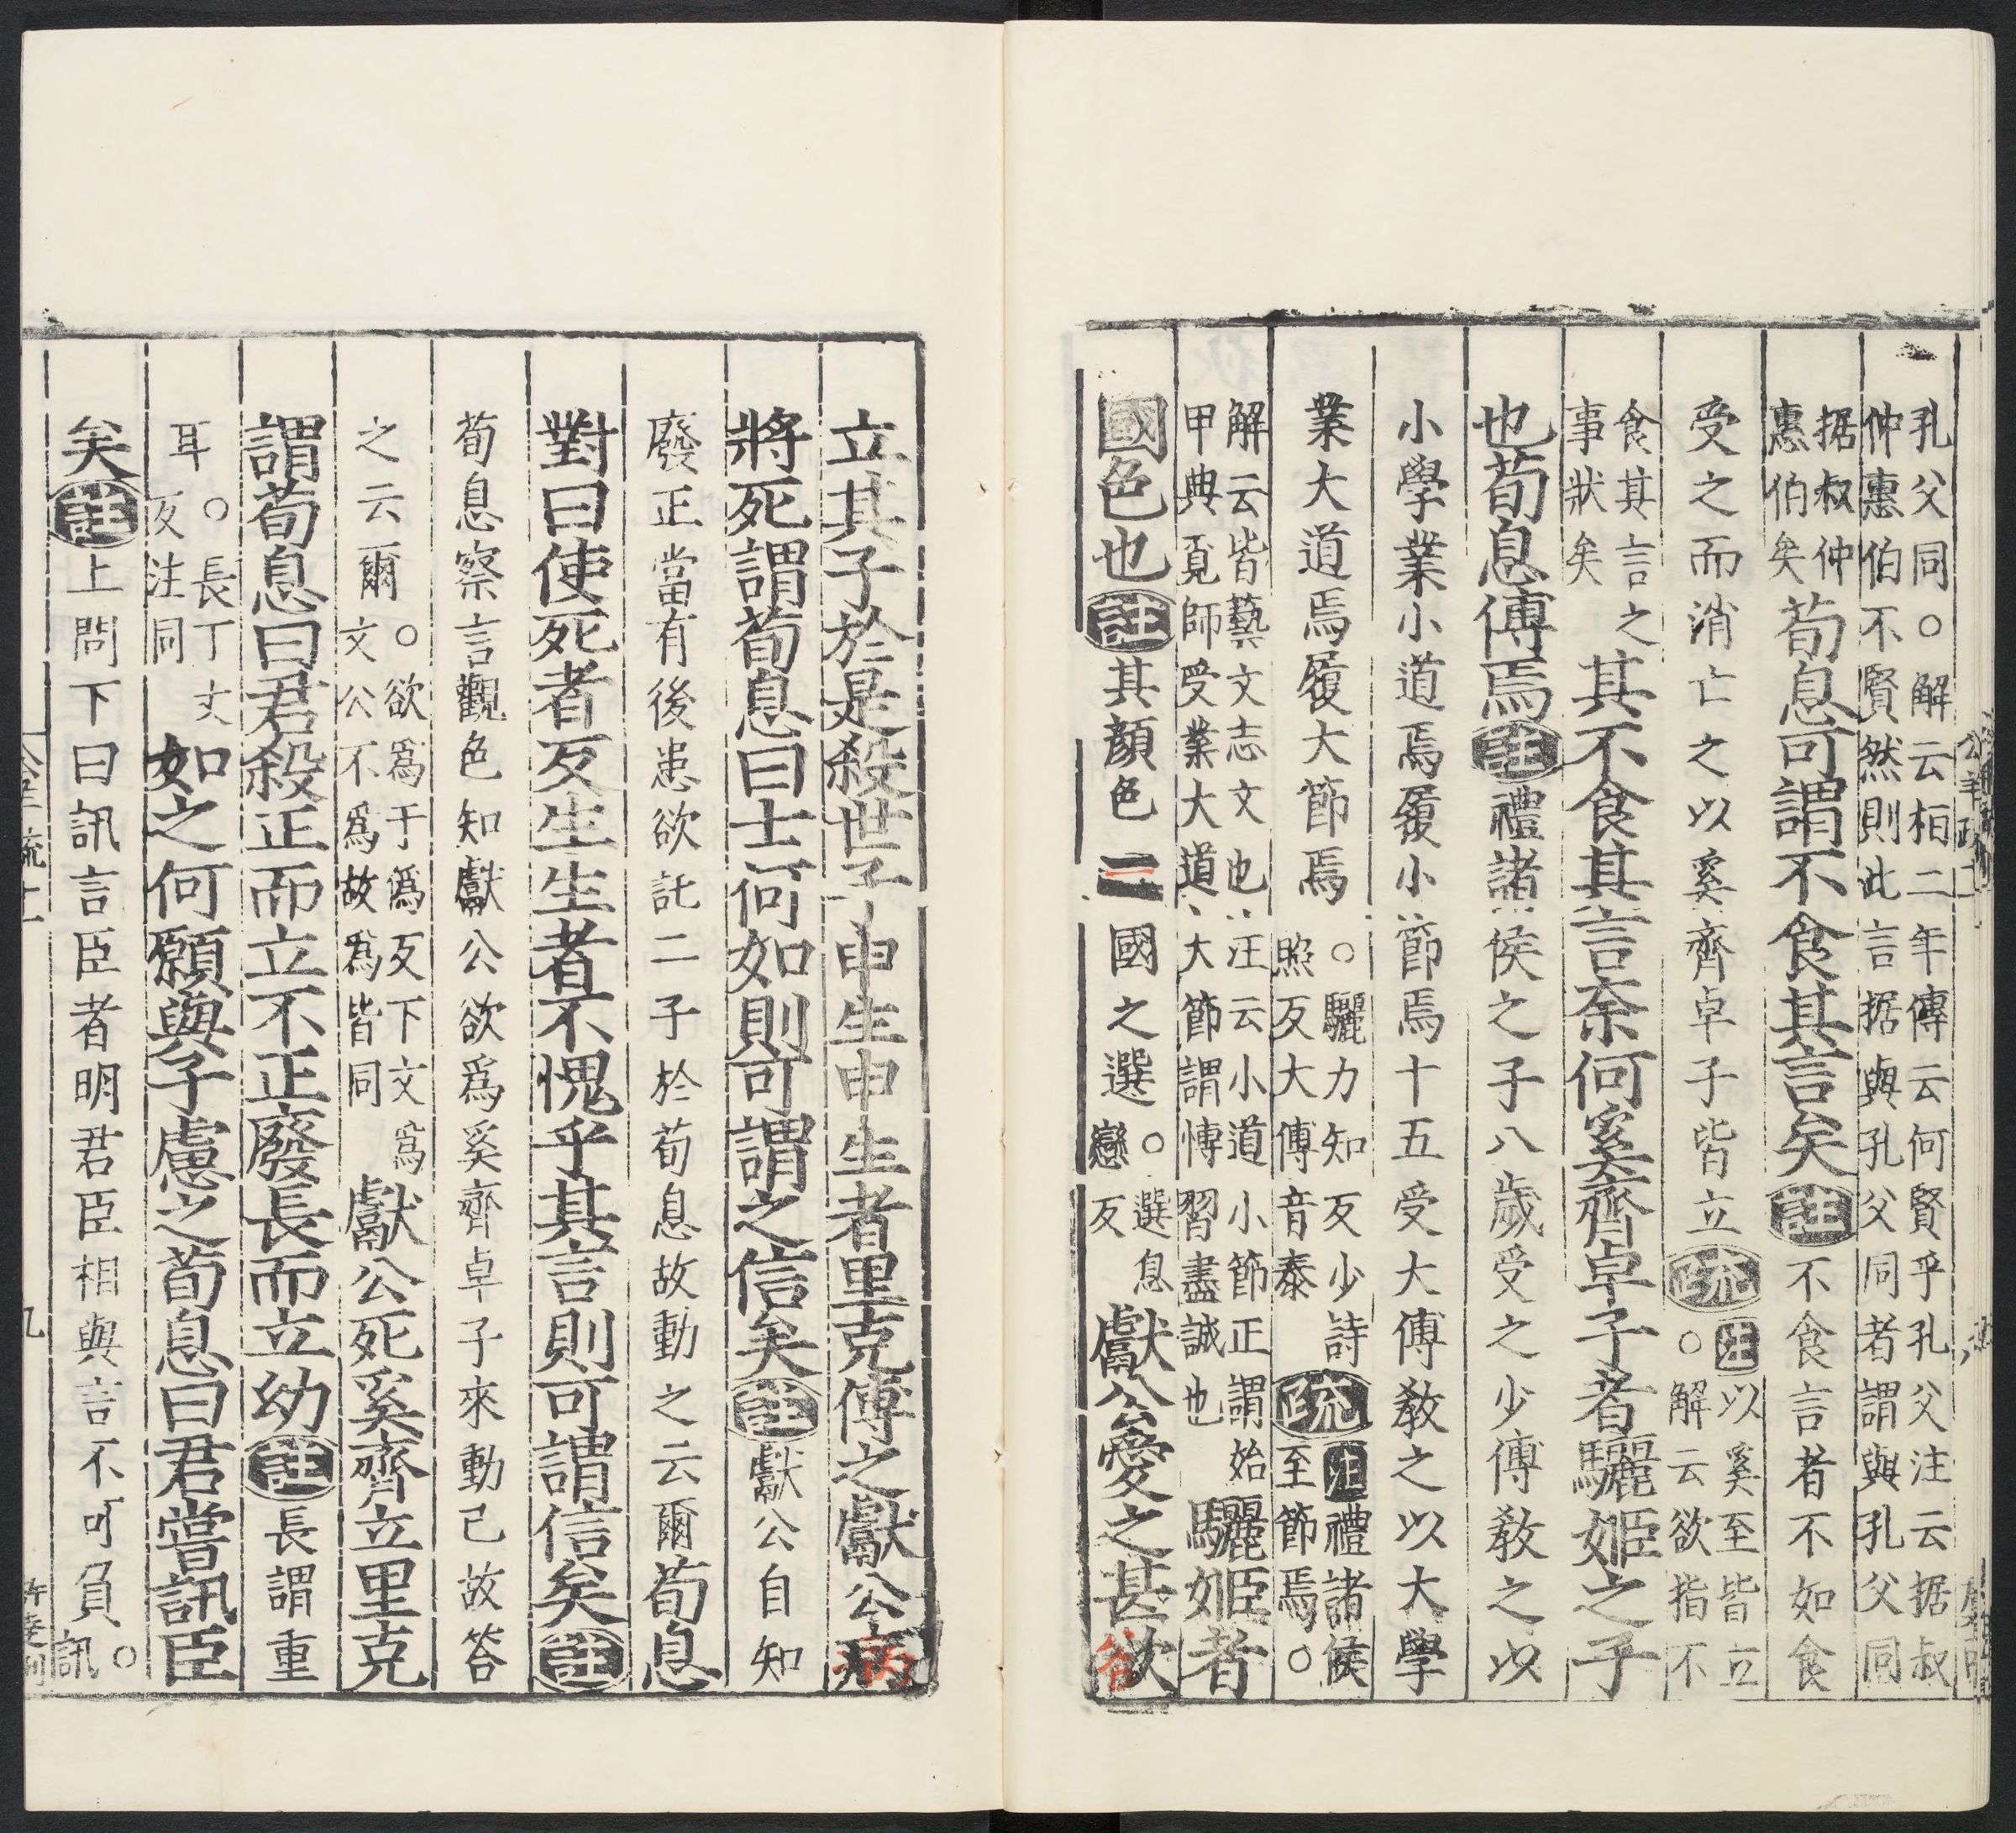 孔父同○解云桓二年傳云何賢乎孔父注云据叔
仲惠伯不賢然則此言据與孔父同者謂與孔父同
据叔仲惠伯矣荀息可謂不食其言矣註不食言者不如食
受之而消亡之以奚齊卓子皆立疏注以奚至皆立○解云欲指不
食其言之事狀矣其不食其言奈何奚齊卓子者驪姬之子
也荀息傅焉註禮諸侯之子八歲受之少傅教之以
小學業小道焉履小節焉十五受大傅教之以大學
業大道焉履大節焉○驪力知反少詩照反大傅音泰疏注禮諸侯至節焉○
解云皆藝文志文也注云小道小節正謂始甲典覓師受業大道大節謂慱習盡誠也驪姬者
國色也註其顏色一國之選○選息戀反獻公愛之甚欲
立其子於是殺世子申生申生者里克傅之獻公病
將死謂荀息曰士何如則可謂之信矣註獻公自知
廢正當有後患欲託二子於荀息故動之云爾荀息
對曰使死者反生生者不愧乎其言則可謂信矣註
荀息察言觀色知獻公欲爲奚齊卓子來動己故答
之云爾○欲爲于僞反下文爲文公不爲故爲皆同獻公死奚齊立里克
謂荀息曰君殺正而立不正廢長而立幼註長謂重
耳○長丁丈反注同如之何願與子慮之荀息曰君嘗訊臣
矣註上問下曰訊言臣者明君臣相與言不可負○訊